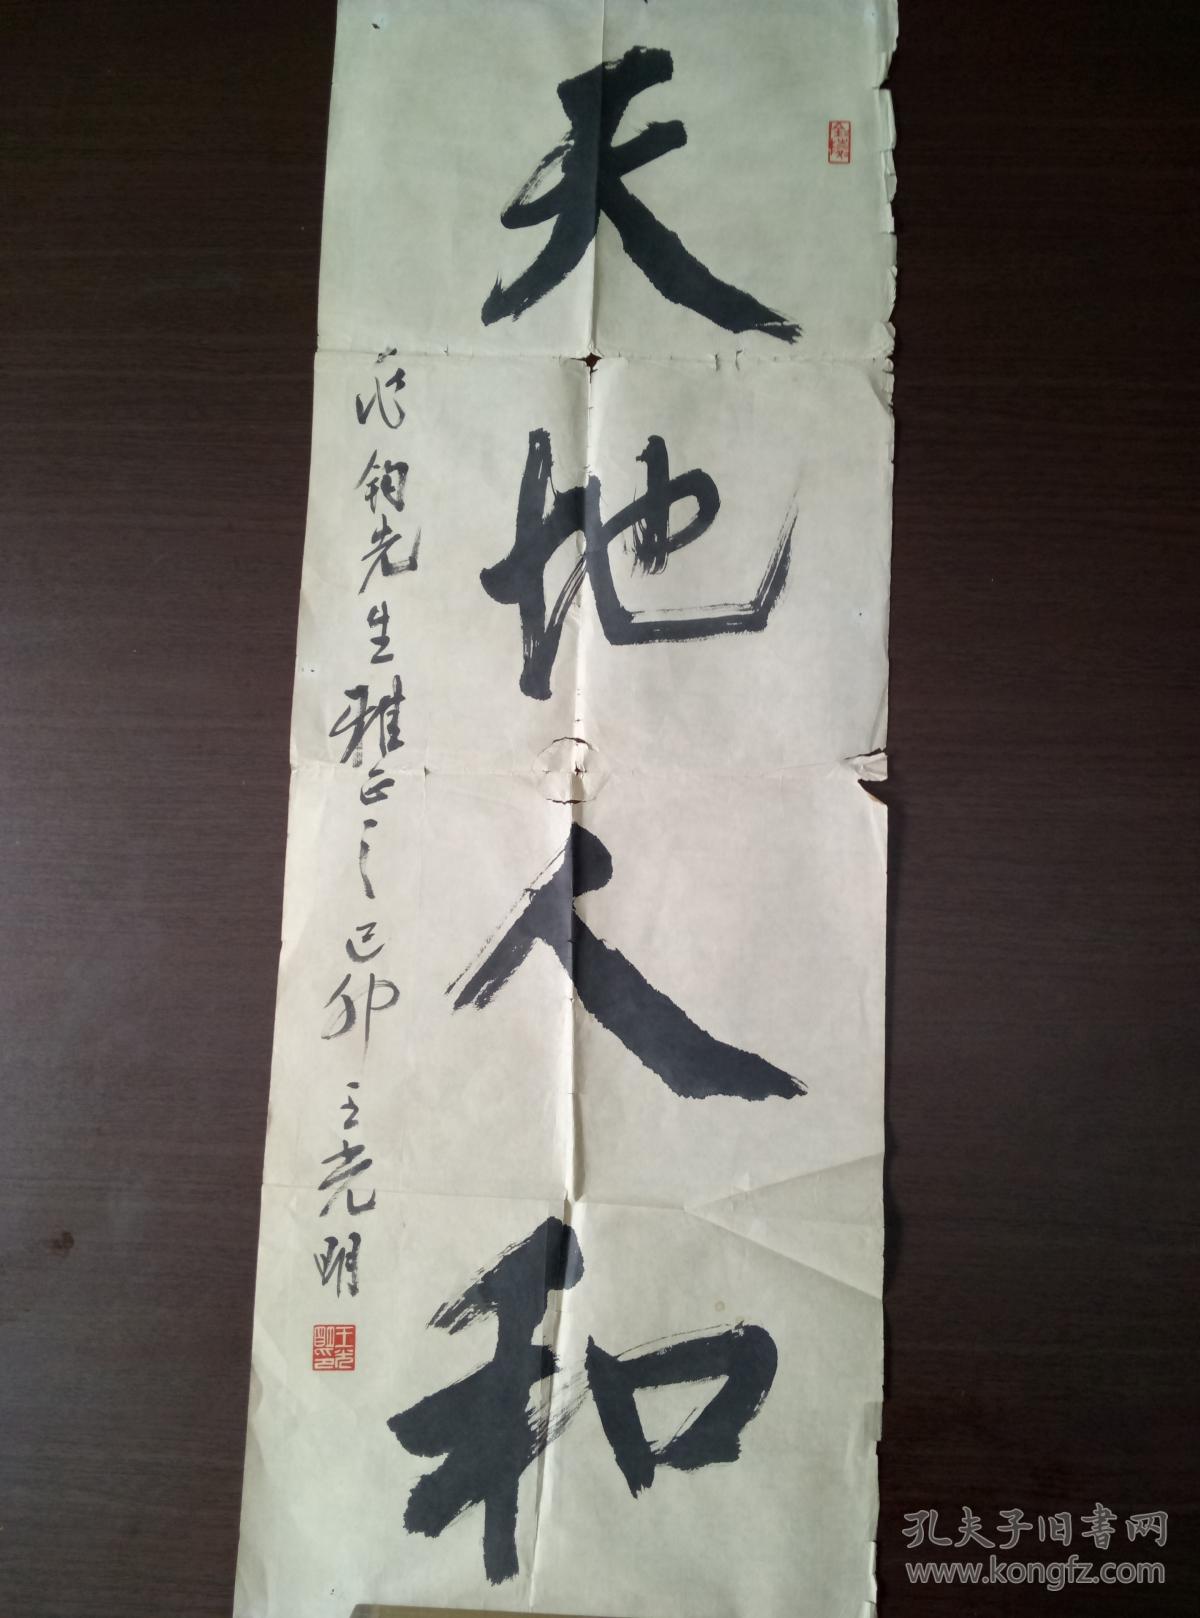 天地人和
钧先生雅正之己卯王光明
王光明印
孔夫子旧书网
www.kongfz.com